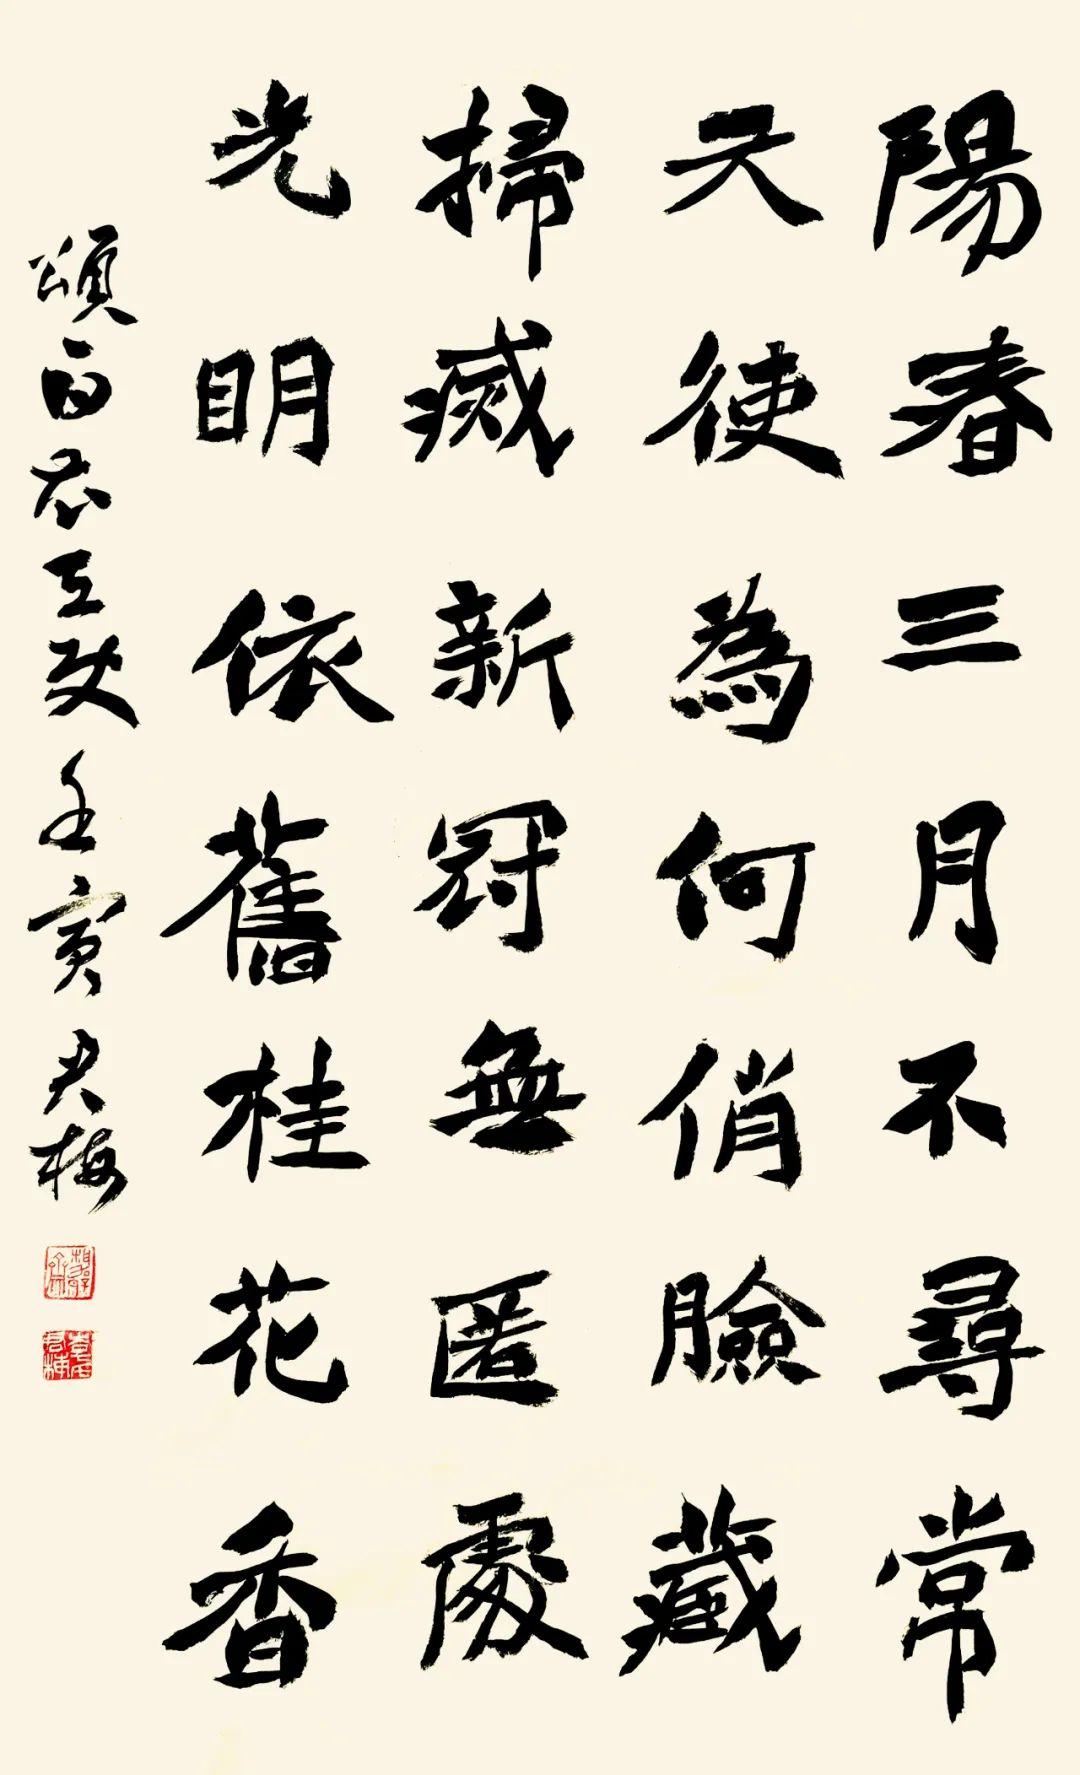 陽春三月不尋常
天使為何俏臉藏
掃滅新冠無匿處
光明依舊桂花香
頌白衣天使壬寅君梅